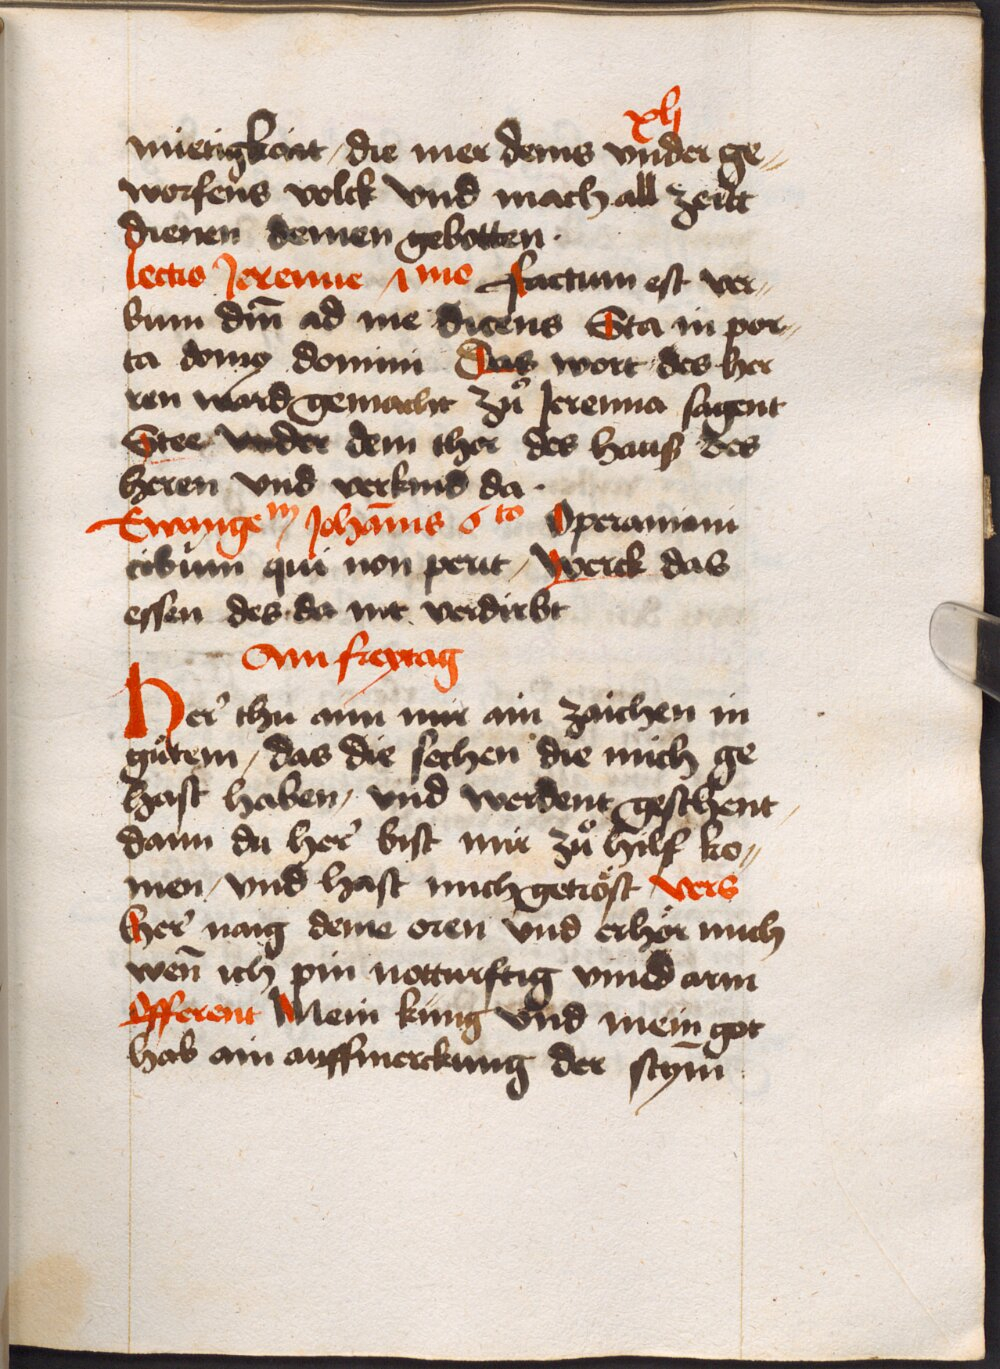 xlj
mietigkait / die mer deins vnder ge〃
worfens volck vnd mach all zeitt
dienen deinen gebotten ·
lectio Jeremie / 1mo factum est ver〃
bum dm̄ ad me dicens Sta in por〃
ta domꝯ domini Das wort des her
ren ward gemacht zuͦ Jeremia sagent
Stee vnder dem thor des hauß des
heren vnd verkind da ·
Ewangem Joha͞nis 6to Operamini
cibum qui non perit / Werck das
essen des da nit verdirbt
Am freytag
Her' thu ann mir ain zaichen in
gutem / das die sechen die mich ge
hast haben / vnd werdent geschent /
dann du her' bist mir zuͦ hilf ko〃
men / vnd hast mich getröst vers
her' naig deine oren vnd erhör mich
wen̄ ich pin notturftig vnnd arm
Offerent Mein küng vnd mein got
hab ain auffmerckung der stym̄